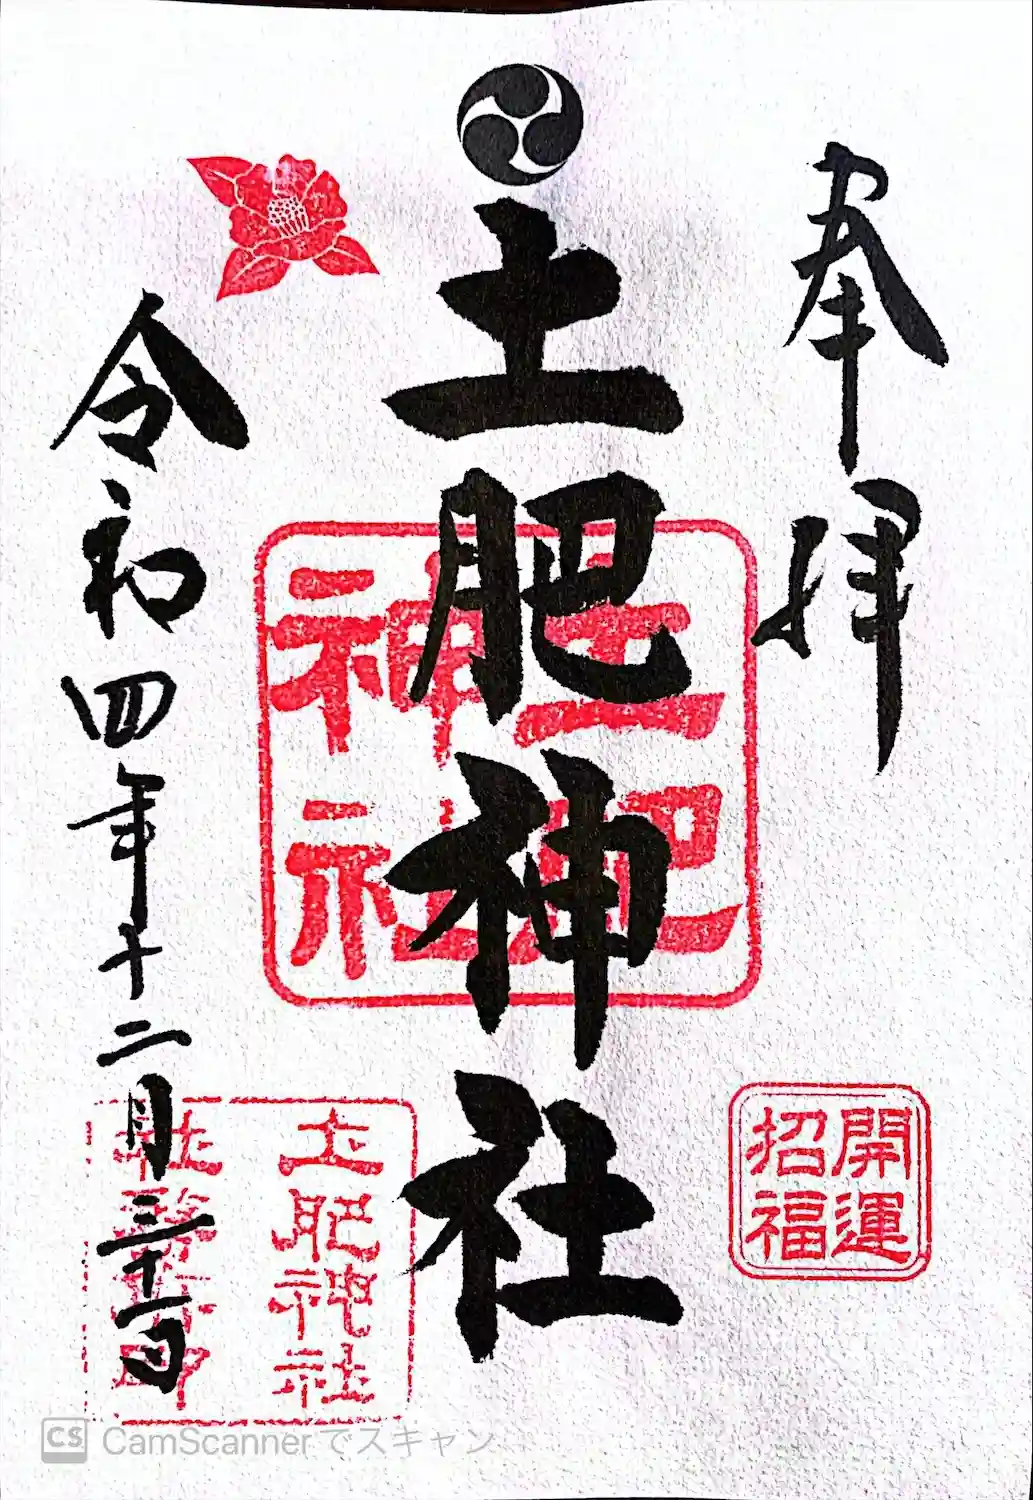 奉拝
土肥神社
土肥神社
開運招福
令和四年十二月三十一日
土肥神社
CS CamScannerでスキャン